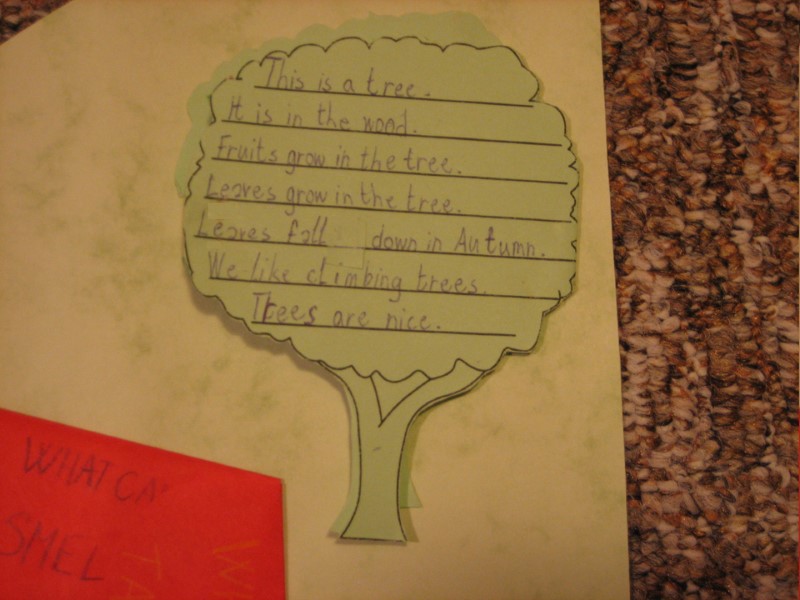 This is a tree.
It is in the wood.
Fruits grow in the tree.
Leaves grow in the tree.
Leaves fall down in Autumn.
We like climbing trees.
Trees are nice.
WHAT
SMEL